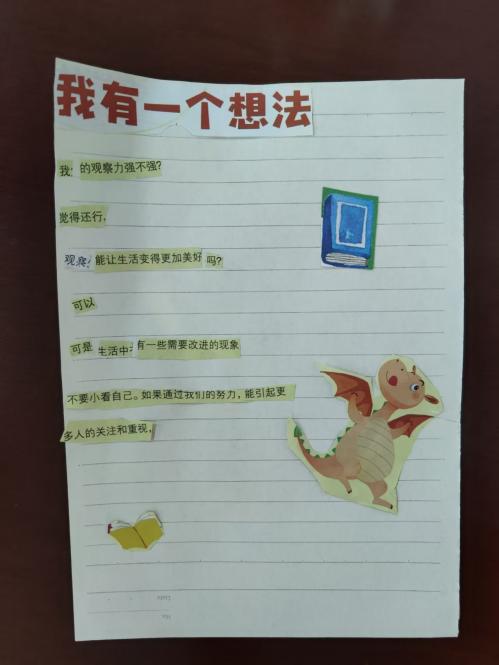 我有一个想法
我 的观察力强不强?
觉得还行,
观察 能让生活变得更加美好 吗?
可以
可是 生活中 有一些需要改进的现象
不要小看自己。如果通过我们的努力,能引起更
多人的关注和重视,